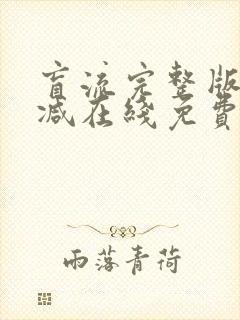 盲流完整版
减在綫免費
雨落青荷